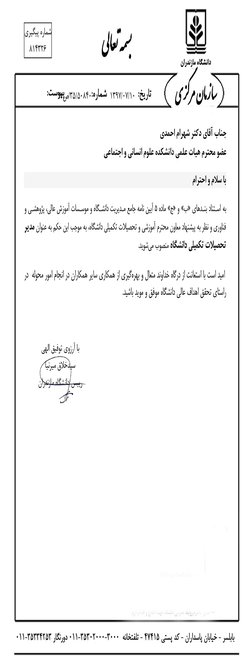 شماره پیگیری
۸۱۴۳۳۶
بسمه تعالی
دانشگاه مازندران
سازمان مرکزی
تاریخ: ۱۳۹۷/۰۷/۱۰ شماره: پیوست:
جناب آقای دکتر شهرام احمدی
عضو محترم هیات علمی دانشکده علوم انسانی و اجتماعی
با سلام و احترام
به استناد بندهای «ب» و «ج» ماده ۵ آیین نامه جامع مدیریت دانشگاه و موسسات آموزش عالی، پژوهشی و
فناوری و نظر به پیشنهاد معاون محترم آموزشی و تحصیلات تکمیلی دانشگاه، به موجب این حکم به عنوان مدیر
تحصیلات تکمیلی دانشگاه منصوب می‌شوید.
امید است با استعانت از درگاه خداوند متعال و بهره‌گیری از همکاری سایر همکاران در انجام امور محوله در
راستای تحقق اهداف عالی دانشگاه موفق و موید باشید.
با آرزوی توفیق الهی
سیدخلاق میرنیا
رییس دانشگاه مازندران
بابلسر - خیابان پاسداران - کد پستی ۴۷۴۱۵ - تلفنخانه ۳۰۰۰-۳۵۳۰۲۰۰۰-۰۱۱ دورنگار ۳۵۳۳۴۲۵۳-۰۱۱